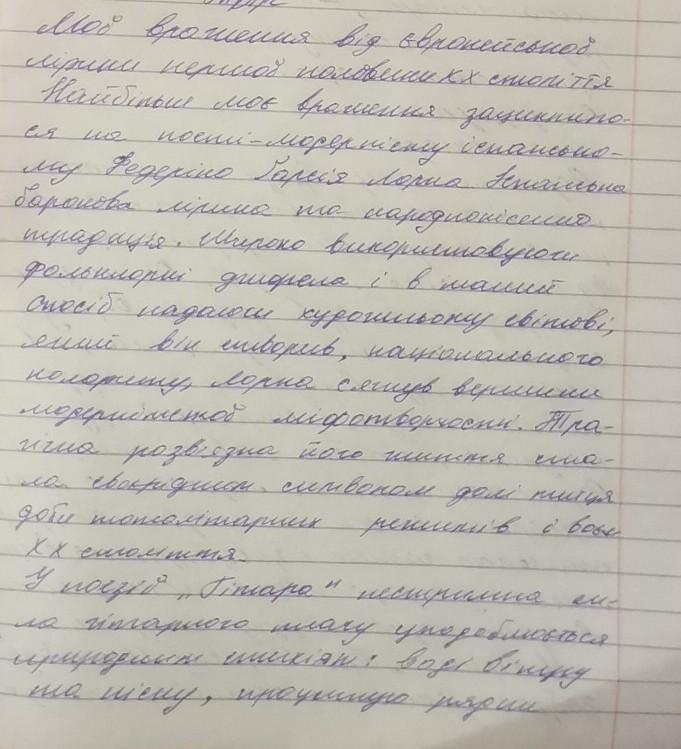 Мої враження від європейської
лірики першої половини ХХ століття
Найбільше моє враження зациклило-
ся на поеті-модерністу іспансько-
му Федеріко Гарсія Лорка. Іспанська
барокова лірика та народнопісенна
традиція. Широко використовуючи
фольклорні джерела і в такий
спосіб надаючи художньому світові,
який він створив, національного
колориту, Лорка сягнув вершини
модерністської міфотворчості. Тра-
гічна розвязка його життя ста-
ла своєрідним символом долі митця
доби тоталітарних режимів і воєн
ХХ століття.
У поезії „Гітара" нестримна си-
ла гітарного плачу уподоблюється
природним стихіям: воді вітру
та піску, працюную рядки